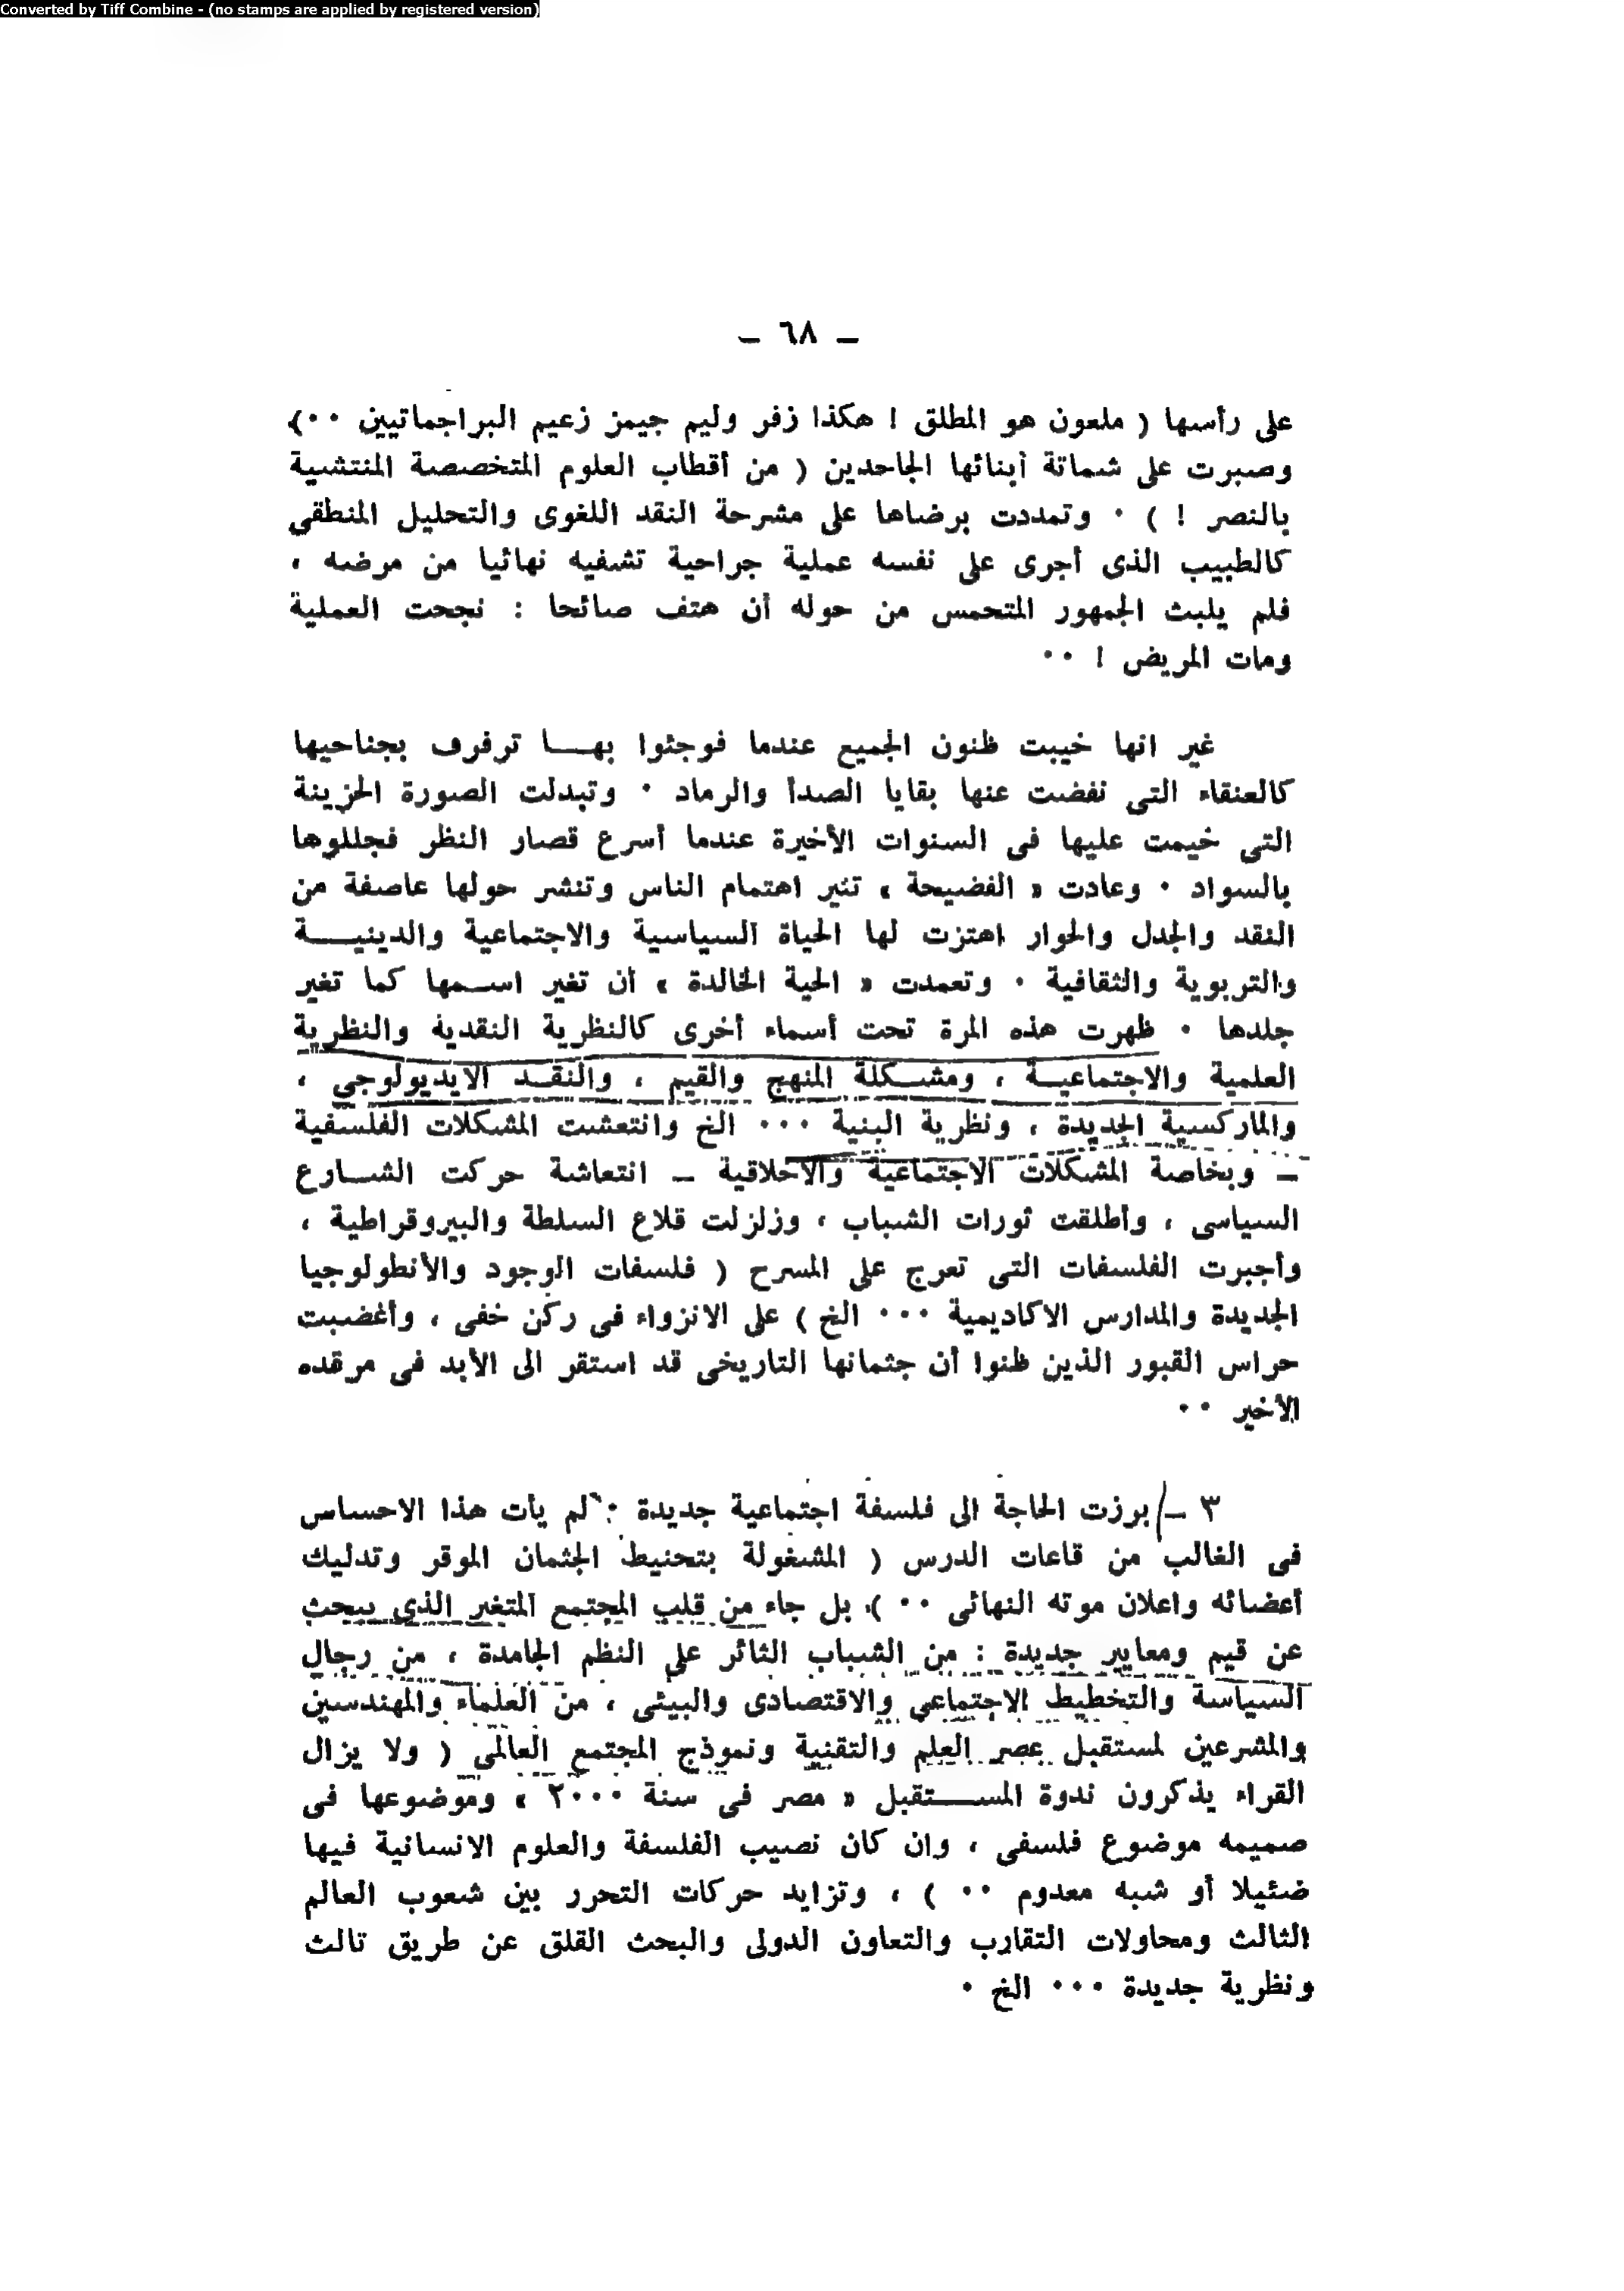 Converted by Tiff Combine - (no stamps are applied by registered version)
– ٦٨ –
على رأسها ( ملعون هو المطلق ! هكذا زفر وليم جيمز زعيم البراجماتيين ٠٠)
وصبرت على شماتة أبنائها الجاحدين ( من أقطاب العلوم المتخصصة المنتشية
بالنصر ! ) ٠ وتمددت برضاها على مشرحة النقد اللغوى والتحليل المنطقي
كالطبيب الذى أجرى على نفسه عملية جراحية تشفيه نهائيا من مرضه ،
فلم يلبث الجمهور المتحمس من حوله أن هتف صائحا : نجحت العملية
ومات المريض ! ٠٠
غير انها خيبت ظنون الجميع عندما فوجئوا بهـــا ترفرف بجناحيها
كالعنقاء التى نفضت عنها بقايا الصدأ والرماد ٠ وتبدلت الصورة الحزينة
التى خيمت عليها فى السنوات الأخيرة عندما أسرع قصار النظر فجللوها
بالسواد ٠ وعادت « الفضيحة » تثير اهتمام الناس وتنشر حولها عاصفة من
النقد والجدل والحوار اهتزت لها الحياة السياسية والاجتماعية والدينيـــة
والتربوية والثقافية ٠ وتعمدت « الحية الخالدة » أن تغير اسـمها كما تغير
جلدها ٠ ظهرت هذه المرة تحت أسماء أخرى كالنظرية النقدية والنظرية
العلمية والاجتماعيـة ، ومشـكلة المنهج والقيم ، والنقـد الايديولوجي ،
والماركسية الجديدة ، ونظرية البنية ٠٠٠ الخ وانتعشت المشكلات الفلسفية
– وبخاصة المشكلات الاجتماعية والأخلاقية – انتعاشة حركت الشـارع
السياسى ، وأطلقت ثورات الشباب ، وزلزلت قلاع السلطة والبيروقراطية ،
وأجبرت الفلسفات التى تعرج على المسرح ( فلسفات الوجود والأنطولوجيا
الجديدة والمدارس الاكاديمية ٠٠٠ الخ ) على الانزواء فى ركن خفى ، وأغضبت
حراس القبور الذين ظنوا أن جثمانها التاريخى قد استقر الى الأبد فى مرقده
الأخير ٠٠
٣ – برزت الحاجة الى فلسفة اجتماعية جديدة : لم يأت هذا الاحساس
فى الغالب من قاعات الدرس ( المشغولة بتحنيط الجثمان الموقر وتدليك
أعضائه واعلان موته النهائى ٠٠ )، بل جاء من قلب المجتمع المتغير الذى يبحث
عن قيم ومعايير جديدة : من الشباب الثائر على النظم الجامدة ، من رجال
السياسة والتخطيط الاجتماعي والاقتصادى والبيئى ، من العلماء والمهندسين
والمشرعين لمستقبل عصر العلم والتقنية ونموذج المجتمع العالمى ( ولا يزال
القراء يذكرون ندوة المســتقبل « مصر فى سنة ٢٠٠٠ » وموضوعها فى
صميمه موضوع فلسفى ، وان كان نصيب الفلسفة والعلوم الانسانية فيها
ضئيلا أو شبه معدوم ٠٠ ) ، وتزايد حركات التحرر بين شعوب العالم
الثالث ومحاولات التقارب والتعاون الدولى والبحث القلق عن طريق ثالث
ونظرية جديدة ٠٠٠ الخ ٠